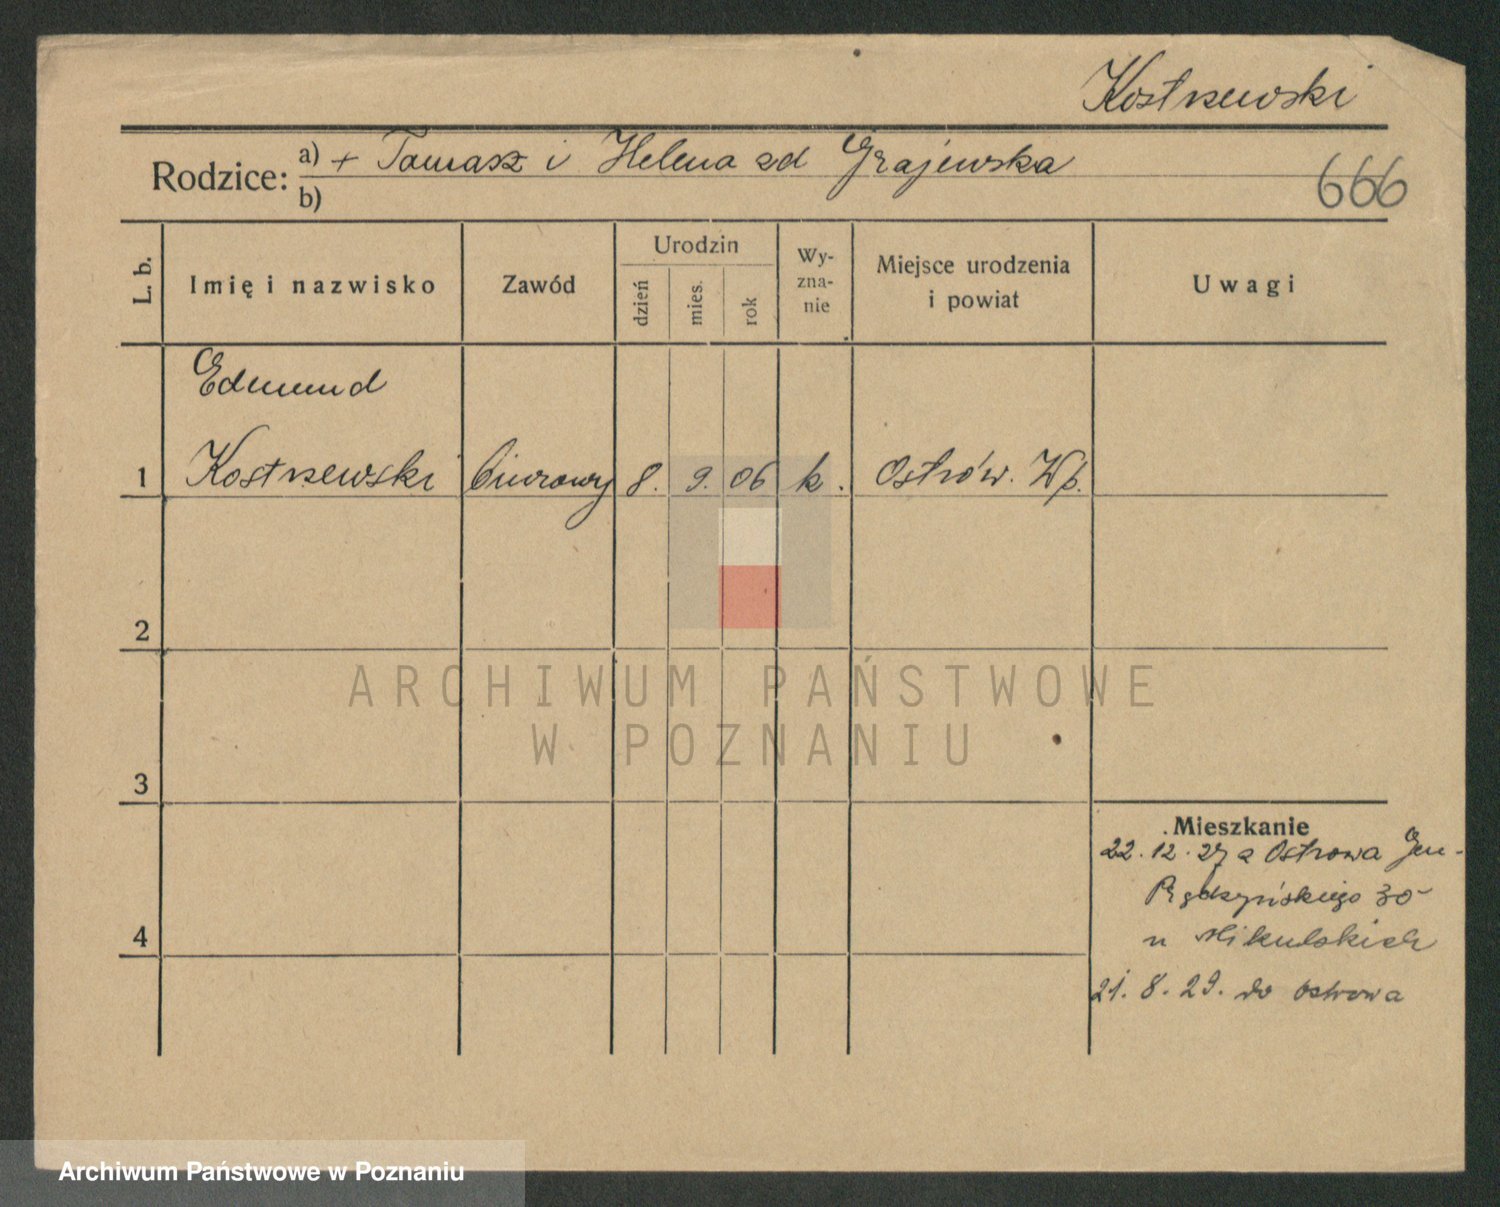 Kostrzewski
Rodzice: a) + Tomasz i Helena zd Grajewska
b)
666
L. b. Imię i nazwisko Zawód Urodzin dzień mies. rok Wy-zna-nie Miejsce urodzenia i powiat Uwagi
Edmund
1 Kostrzewski biurowy 8. 9. 06 k. Ostrów. Wp.
2
ARCHIWUM PAŃSTWOWE
W POZNANIU
3
Mieszkanie
22. 12. 27 z Ostrowa Gen-
Prądzyńskiego 30
u Mikulskich
4
21. 8. 29. do Ostrowa
Archiwum Państwowe w Poznaniu